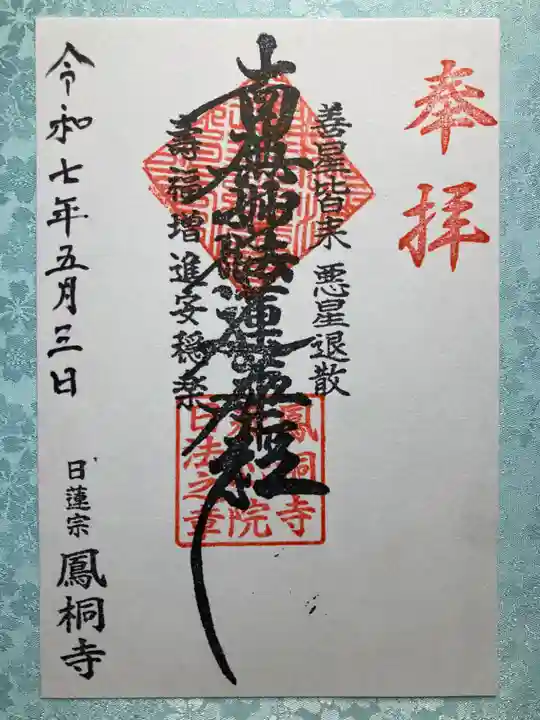 奉拝
善星皆来 悪星退散
南無妙法蓮華経
壽福増進安穏楽
鳳桐寺
院
日法之章
令和七年五月三日
日蓮宗 鳳桐寺